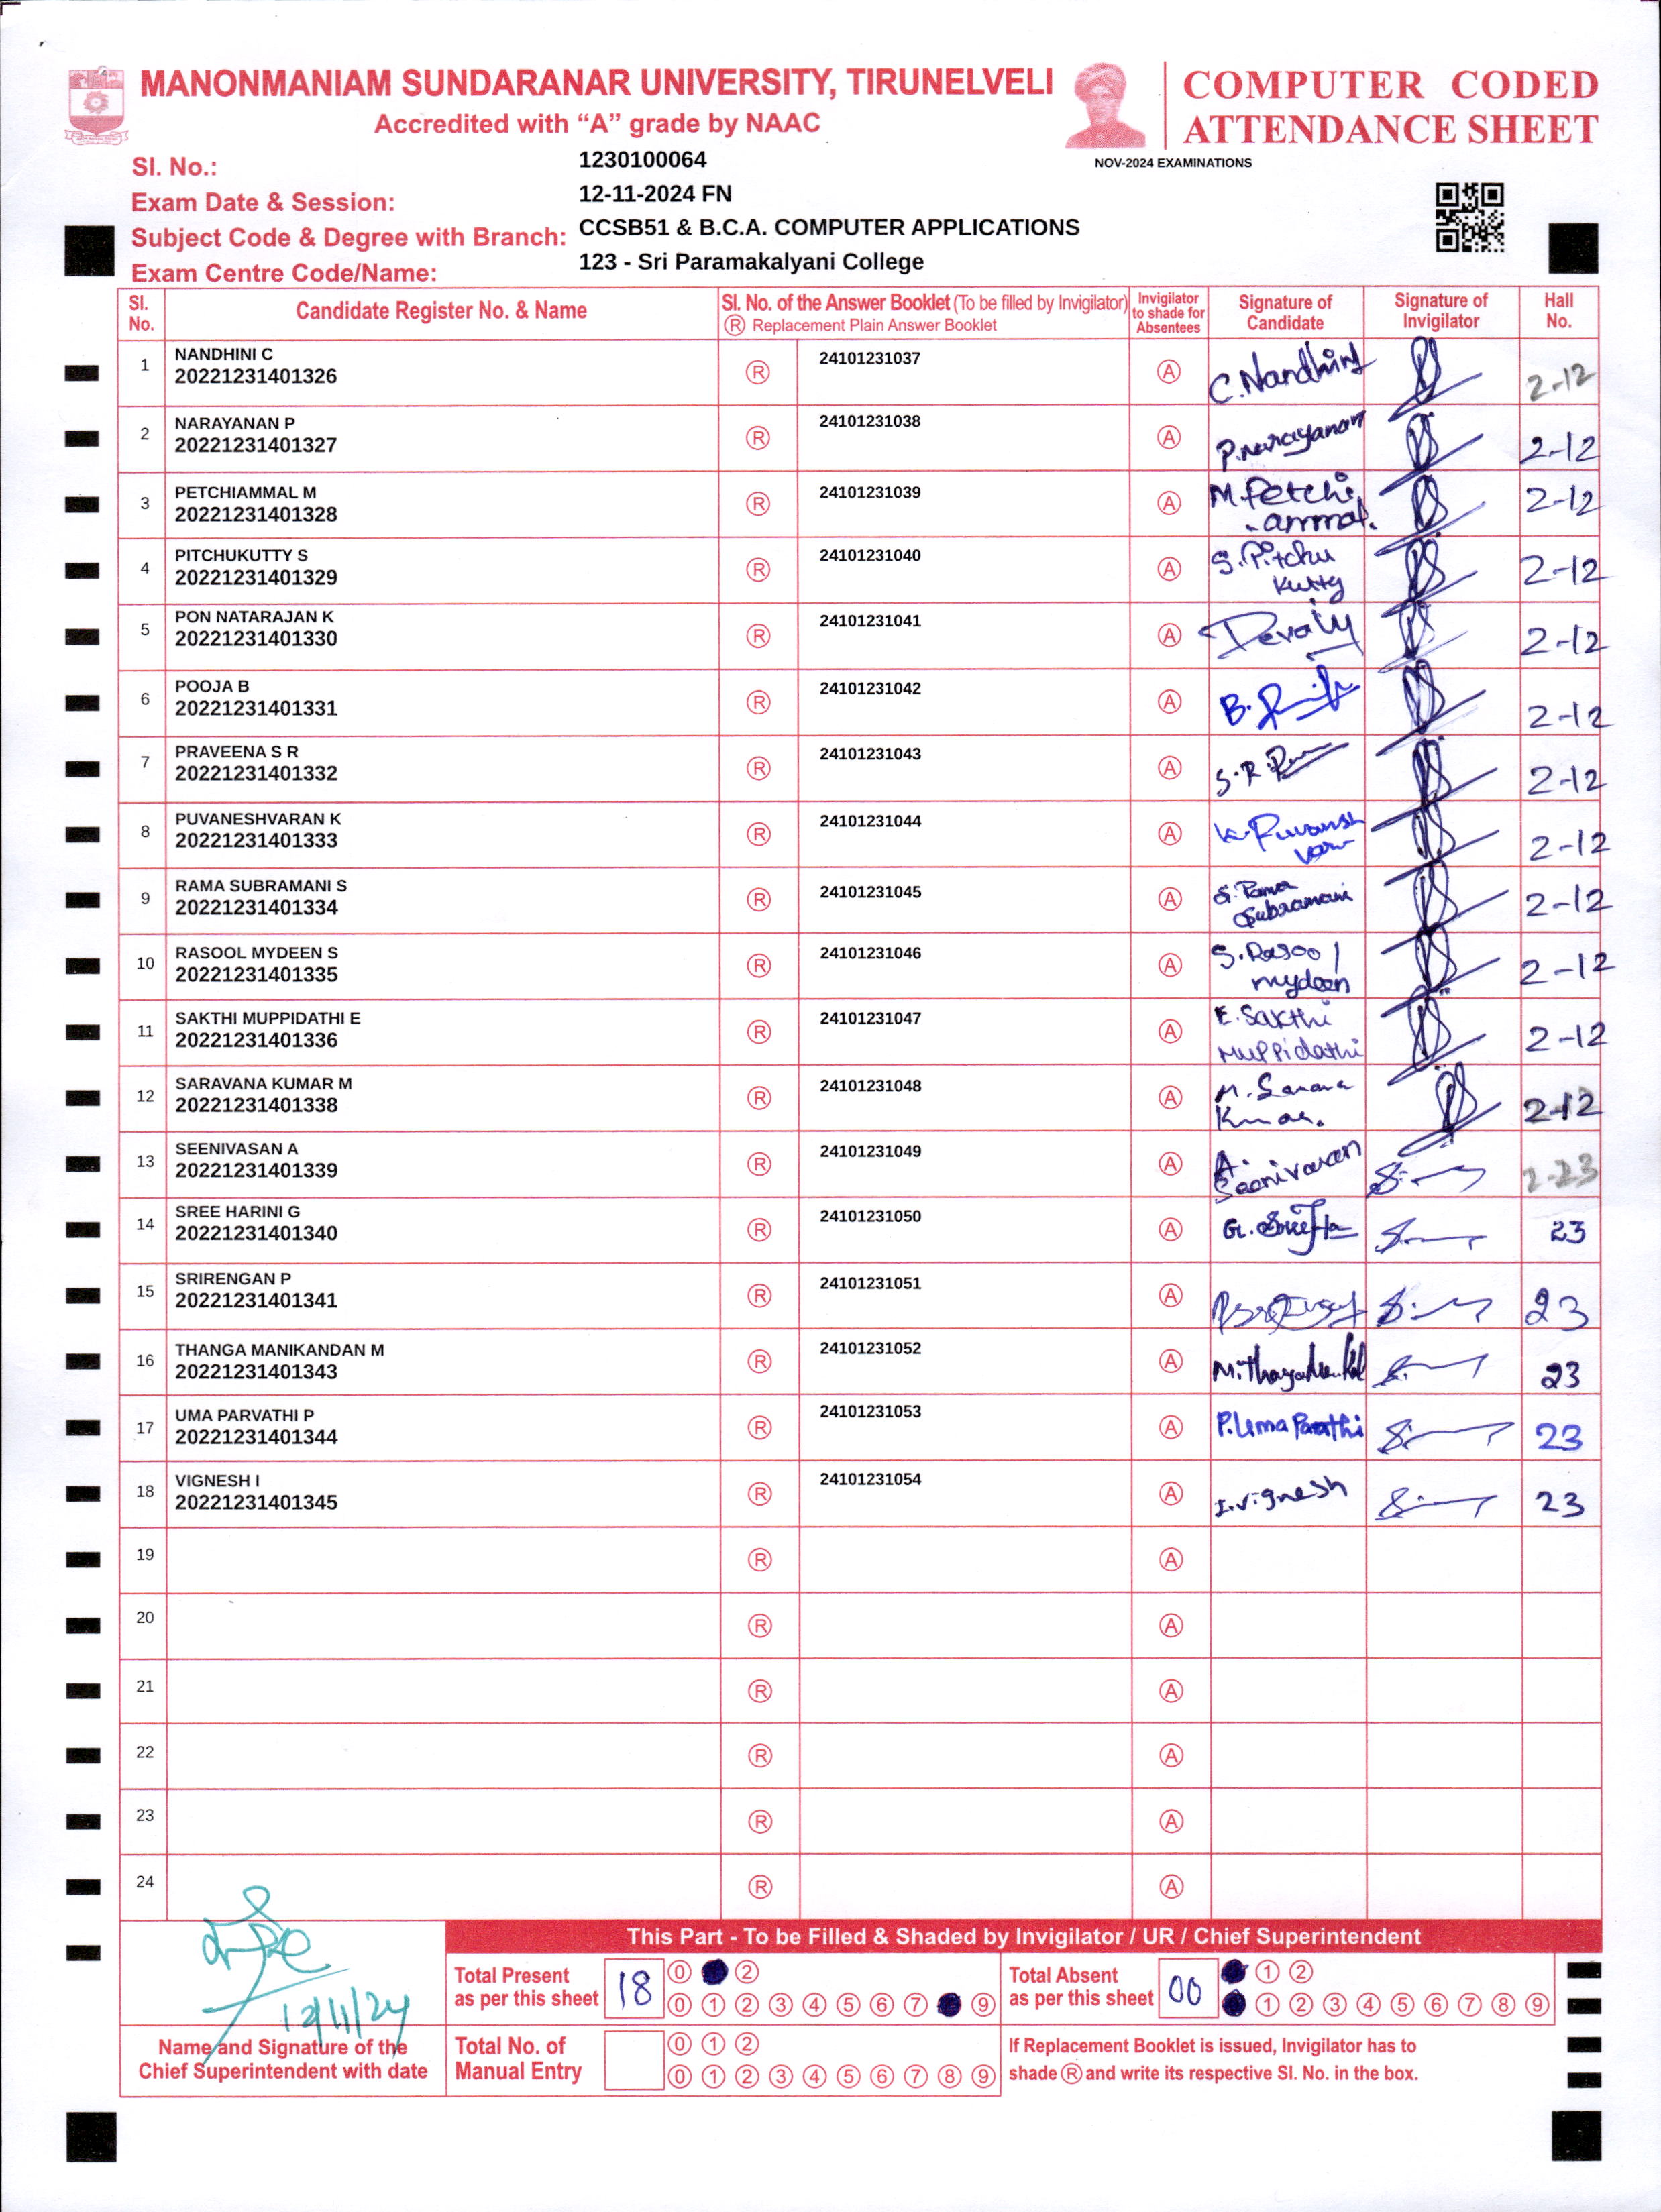 MANONMANIAM SUNDARANAR UNIVERSITY, TIRUNELVELI
Accredited with “A” grade by NAAC
COMPUTER CODED
ATTENDANCE SHEET
NOV-2024 EXAMINATIONS
Sl. No.: 1230100064
Exam Date & Session: 12-11-2024 FN
Subject Code & Degree with Branch: CCSB51 & B.C.A. COMPUTER APPLICATIONS
Exam Centre Code/Name: 123 - Sri Paramakalyani College
Sl. No. Candidate Register No. & Name Sl. No. of the Answer Booklet (To be filled by Invigilator) Ⓡ Replacement Plain Answer Booklet Invigilator to shade for Absentees Signature of Candidate Signature of Invigilator Hall No.
1 NANDHINI C 20221231401326 Ⓡ 24101231037 Ⓐ C.Nandhini 2-12
2 NARAYANAN P 20221231401327 Ⓡ 24101231038 Ⓐ P.Narayanan 2-12
3 PETCHIAMMAL M 20221231401328 Ⓡ 24101231039 Ⓐ M.Petchi -ammal. 2-12
4 PITCHUKUTTY S 20221231401329 Ⓡ 24101231040 Ⓐ S.Pitchu Kutty 2-12
5 PON NATARAJAN K 20221231401330 Ⓡ 24101231041 Ⓐ 2-12
6 POOJA B 20221231401331 Ⓡ 24101231042 Ⓐ 2-12
7 PRAVEENA S R 20221231401332 Ⓡ 24101231043 Ⓐ 2-12
8 PUVANESHVARAN K 20221231401333 Ⓡ 24101231044 Ⓐ 2-12
9 RAMA SUBRAMANI S 20221231401334 Ⓡ 24101231045 Ⓐ S.Rama Subramani 2-12
10 RASOOL MYDEEN S 20221231401335 Ⓡ 24101231046 Ⓐ S.Rasool mydeen 2-12
11 SAKTHI MUPPIDATHI E 20221231401336 Ⓡ 24101231047 Ⓐ E.Sakthi Muppidathi 2-12
12 SARAVANA KUMAR M 20221231401338 Ⓡ 24101231048 Ⓐ 2-12
13 SEENIVASAN A 20221231401339 Ⓡ 24101231049 Ⓐ A. Seenivasan 2-23
14 SREE HARINI G 20221231401340 Ⓡ 24101231050 Ⓐ 23
15 SRIRENGAN P 20221231401341 Ⓡ 24101231051 Ⓐ 23
16 THANGA MANIKANDAN M 20221231401343 Ⓡ 24101231052 Ⓐ 23
17 UMA PARVATHI P 20221231401344 Ⓡ 24101231053 Ⓐ 23
18 VIGNESH I 20221231401345 Ⓡ 24101231054 Ⓐ I.Vignesh 23
19 Ⓡ Ⓐ
20 Ⓡ Ⓐ
21 Ⓡ Ⓐ
22 Ⓡ Ⓐ
23 Ⓡ Ⓐ
24 Ⓡ Ⓐ
12/11/24
Name and Signature of the
Chief Superintendent with date
This Part - To be Filled & Shaded by Invigilator / UR / Chief Superintendent
Total Present as per this sheet 18
0 2
0 1 2 3 4 5 6 7 9
Total Absent as per this sheet 00
1 2
1 2 3 4 5 6 7 8 9
Total No. of Manual Entry
0 1 2
0 1 2 3 4 5 6 7 8 9
If Replacement Booklet is issued, Invigilator has to
shade Ⓡ and write its respective Sl. No. in the box.